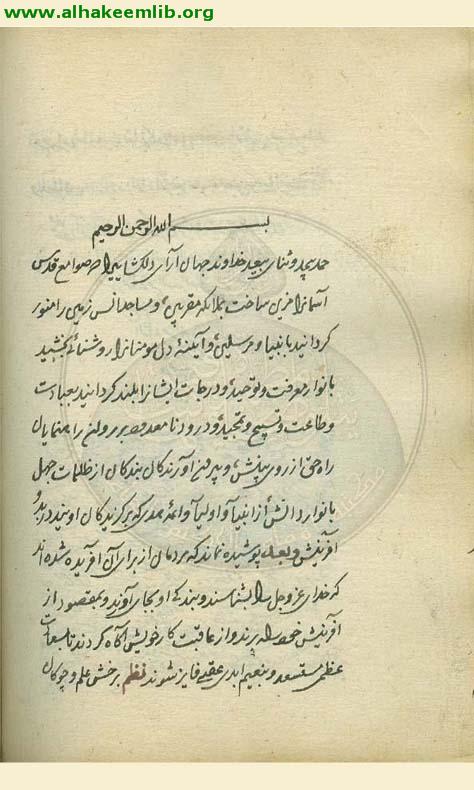 www.alhakeemlib.org
بسم الله الرحمن الرحیم
حمد بیحد و ثنای بیعد خداوند جهان آرای دلکشایی را که صوامع قدس
آسمانرا مزین ساخت بملائکه مقربین و مساجد انس زمین را منور
کردانید بانبیا و مرسلین و آیکنهٔ دل مومنانرا روشنائی بخشید
بانوار معرفت و توحید و درجات ایشانرا بلند کردانید بعبادت
و طاعت و تسبیح و تمجید و درود نامعدود بر رهنمایان
راه حق از روی بینش و بیرون آورندکان بندکان از ظلمات جهل
بانوار دانش از انبیا و اولیا و ائمهٔ هدی که برکزیدکان اویند در بدو
آفرینش و بعد پوشیده نماند که مردمان از برای آن آفریده شده اند
که خدای عز و جل را بشناسند و بندکی او بجای آورند و بمقصود از
آفرینش خود پی برند و از عاقبت کار خویش آکاه کردند تا بسعادت
عظمی مستسعد و بنعیم ابدی عقبی فایز شوند نظم برخش علم و چوکان